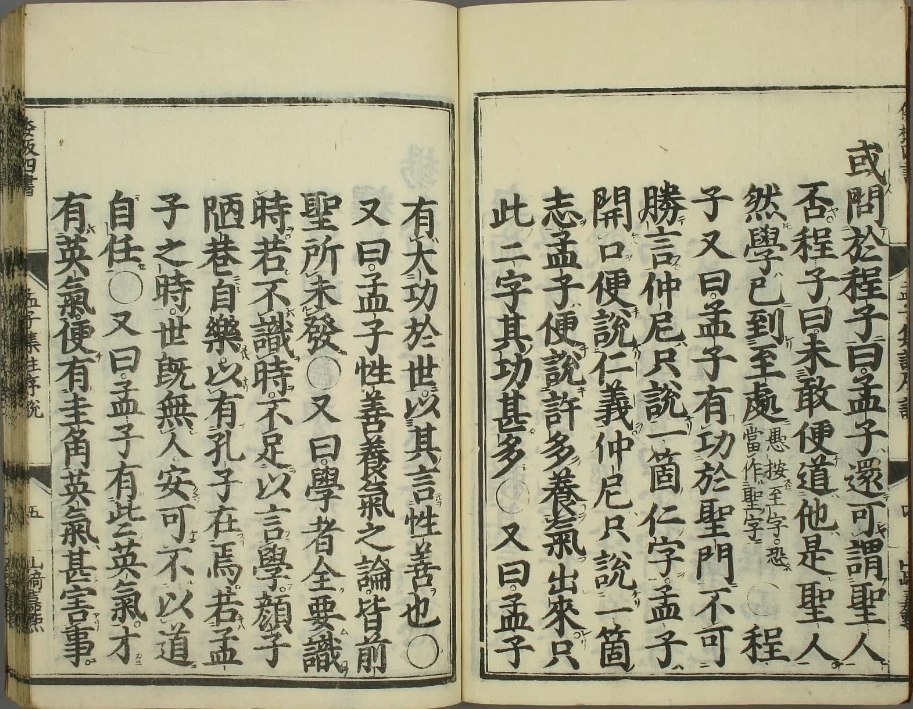 或問於程子曰孟子還可謂聖人
否程子曰未敢便道他是聖人
然學已到至處愚按至字恐當作聖字○程
子又曰孟子有功於聖門不可
勝言仲尼只說一箇仁字孟子
開口便說仁義仲尼只說一箇
志孟子便說許多養氣出來只
此二字其功甚多○又曰孟子
有大功於世以其言性善也○
又曰孟子性善養氣之論皆前
聖所未發○又曰學者全要識
時若不識時不足以言學顏子
陋巷自樂以有孔子在焉若孟
子之時世既無人安可不以道
自任○又曰孟子有些英氣才
有英氣便有圭角英氣甚害事
孟子集註序說
五